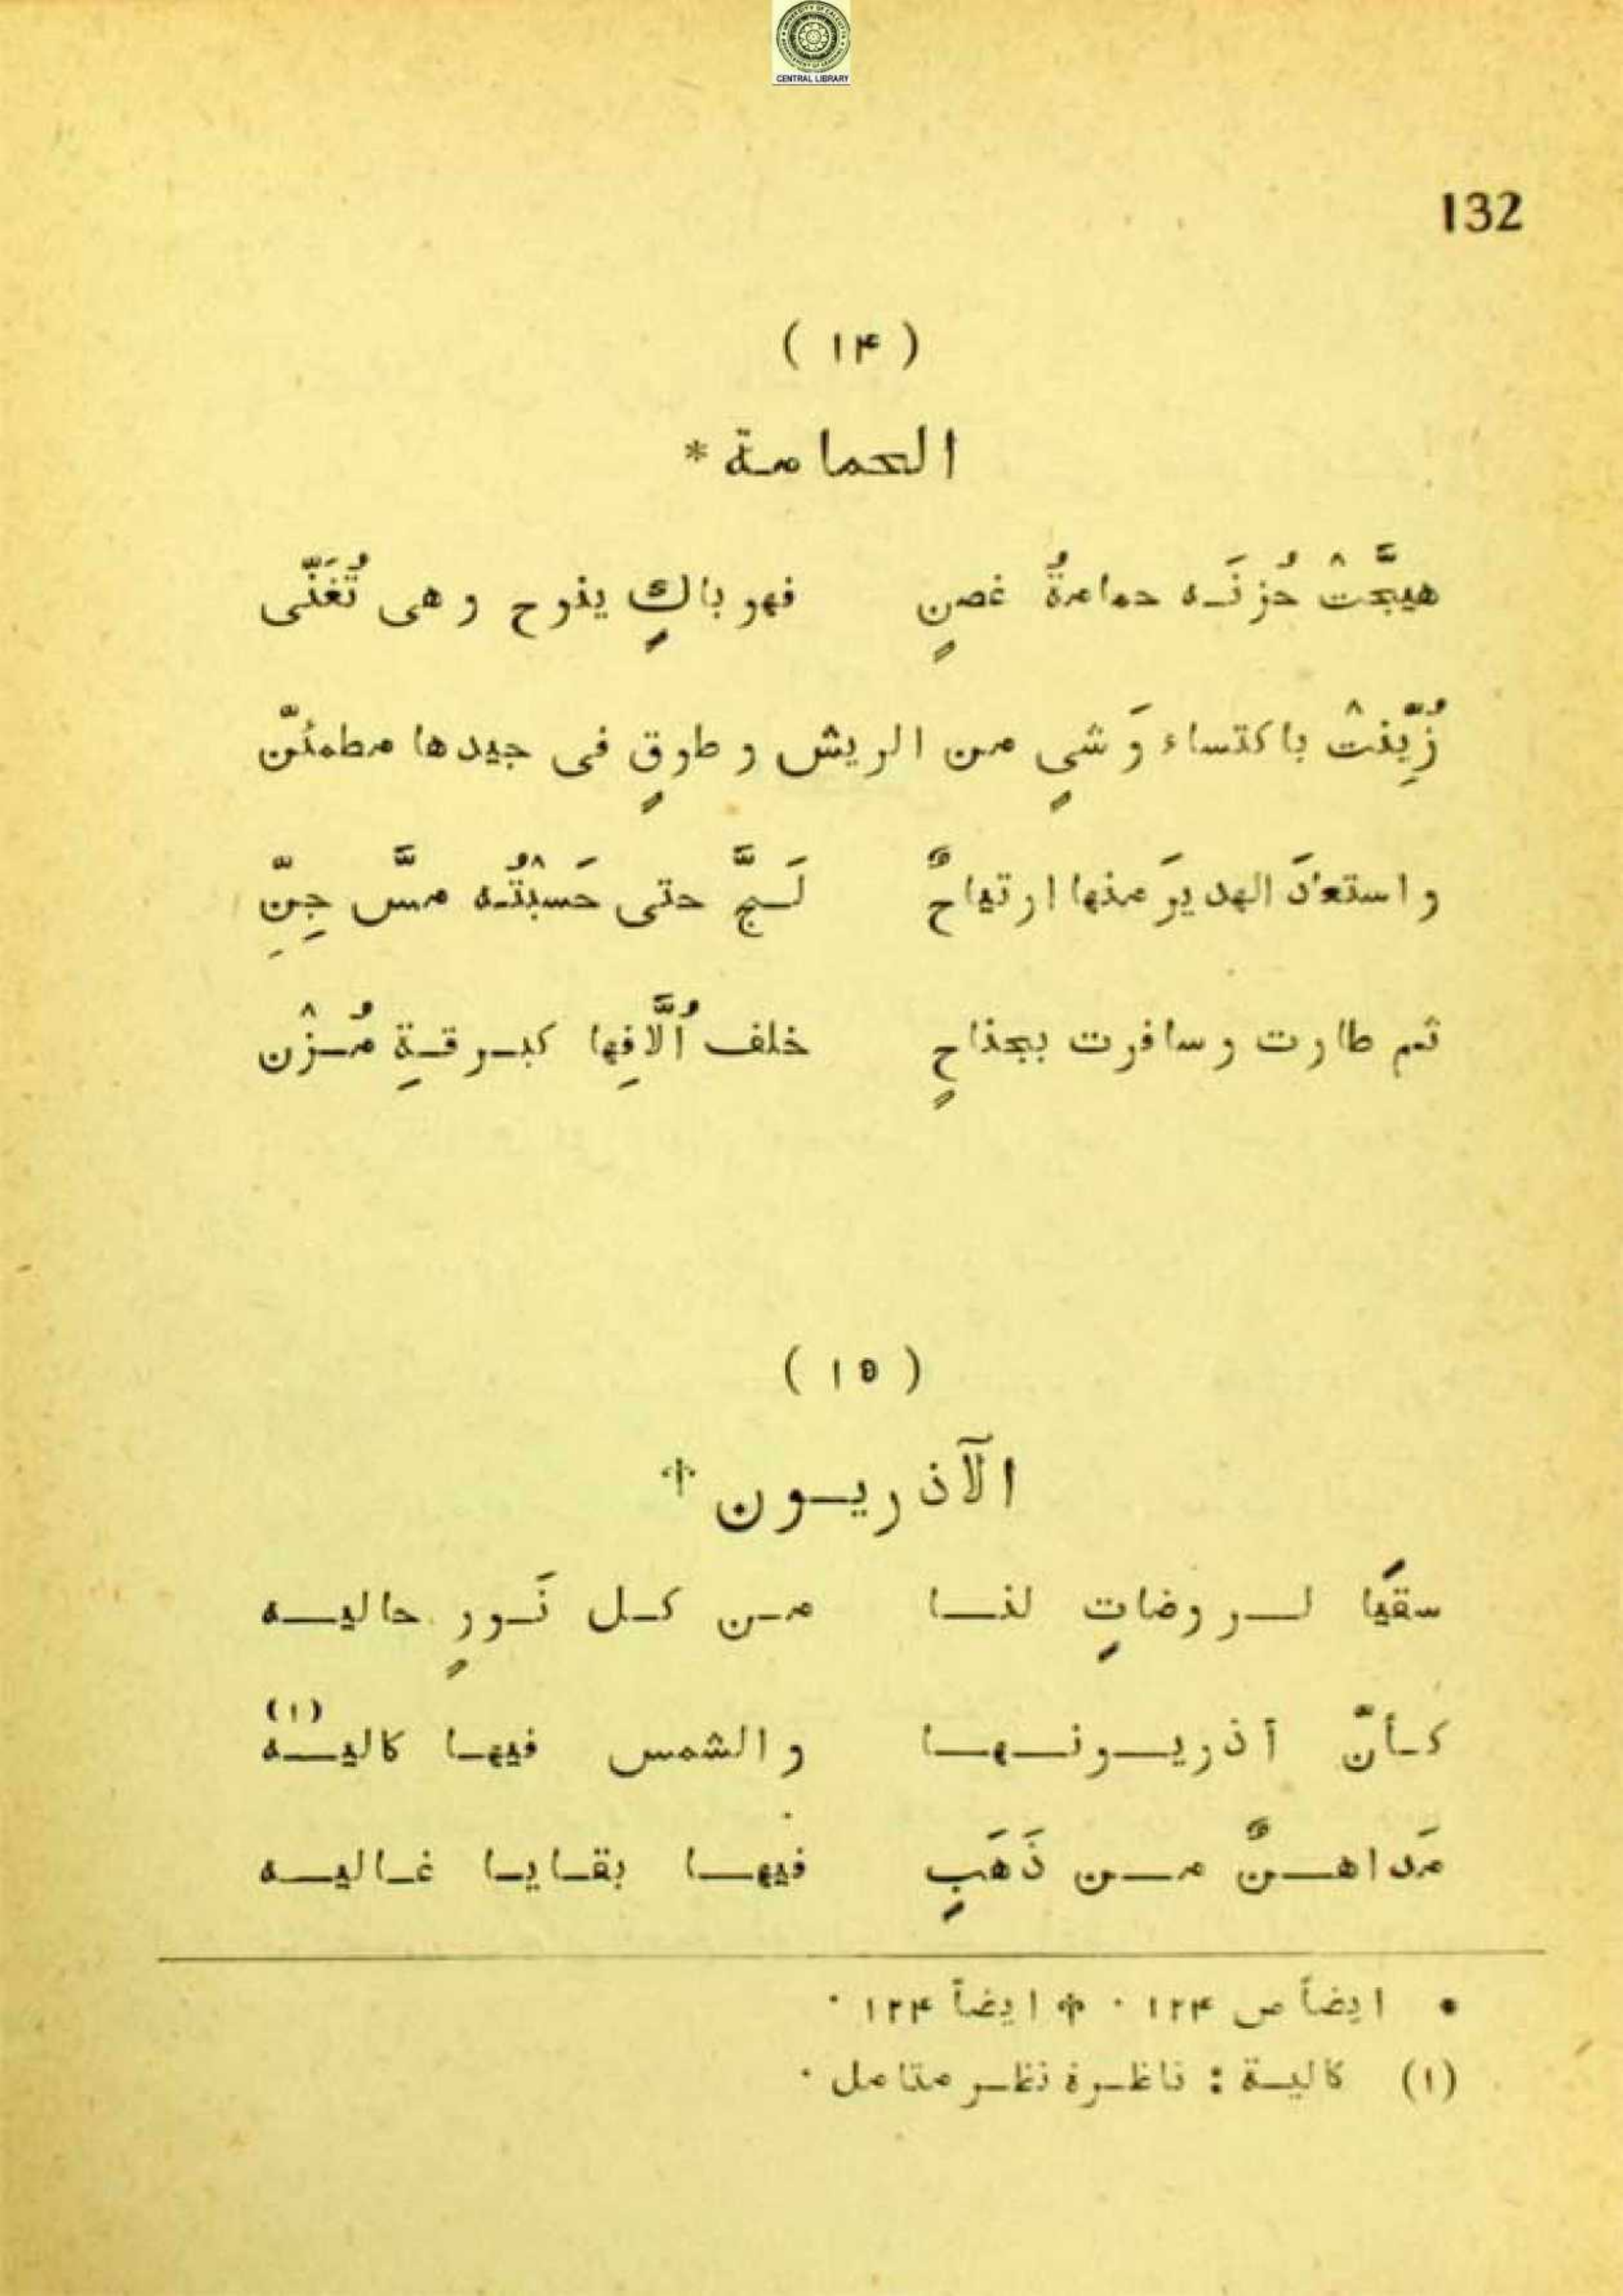 CENTRAL LIBRARY
132
( ۱۴ )
الحمامة *
هيّجَتْ حُزنَه حمامةُ غصنٍ فهو باكٍ ينوح وهى تُغَنّى
زُيِّنتْ باكتساء وَشىٍ من الريش وطوقٍ فى جيدها مطمئنّ
واستعادَ الهديرَ منها ارتياحٌ لَجَّ حتى حَسبْتُه مسَّ جِنِّ
ثم طارت وسافرت بجناحٍ خلف اُلَّافِها كبرقةِ مُزْن
( ۱۵ )
الآذريون ☥
سقيًا لروضاتٍ لنا من كل نَورٍ حاليه
كأنّ آذريونها والشمس فيها كاليه (۱)
مَداهنٌ من ذَهَبٍ فيها بقايا غاليه
• ايضاً ص ۱۲۴ ۰ ☥ ايضاً ۱۲۴ ۰
(۱) كالية : ناظرة نظر متامل ۰